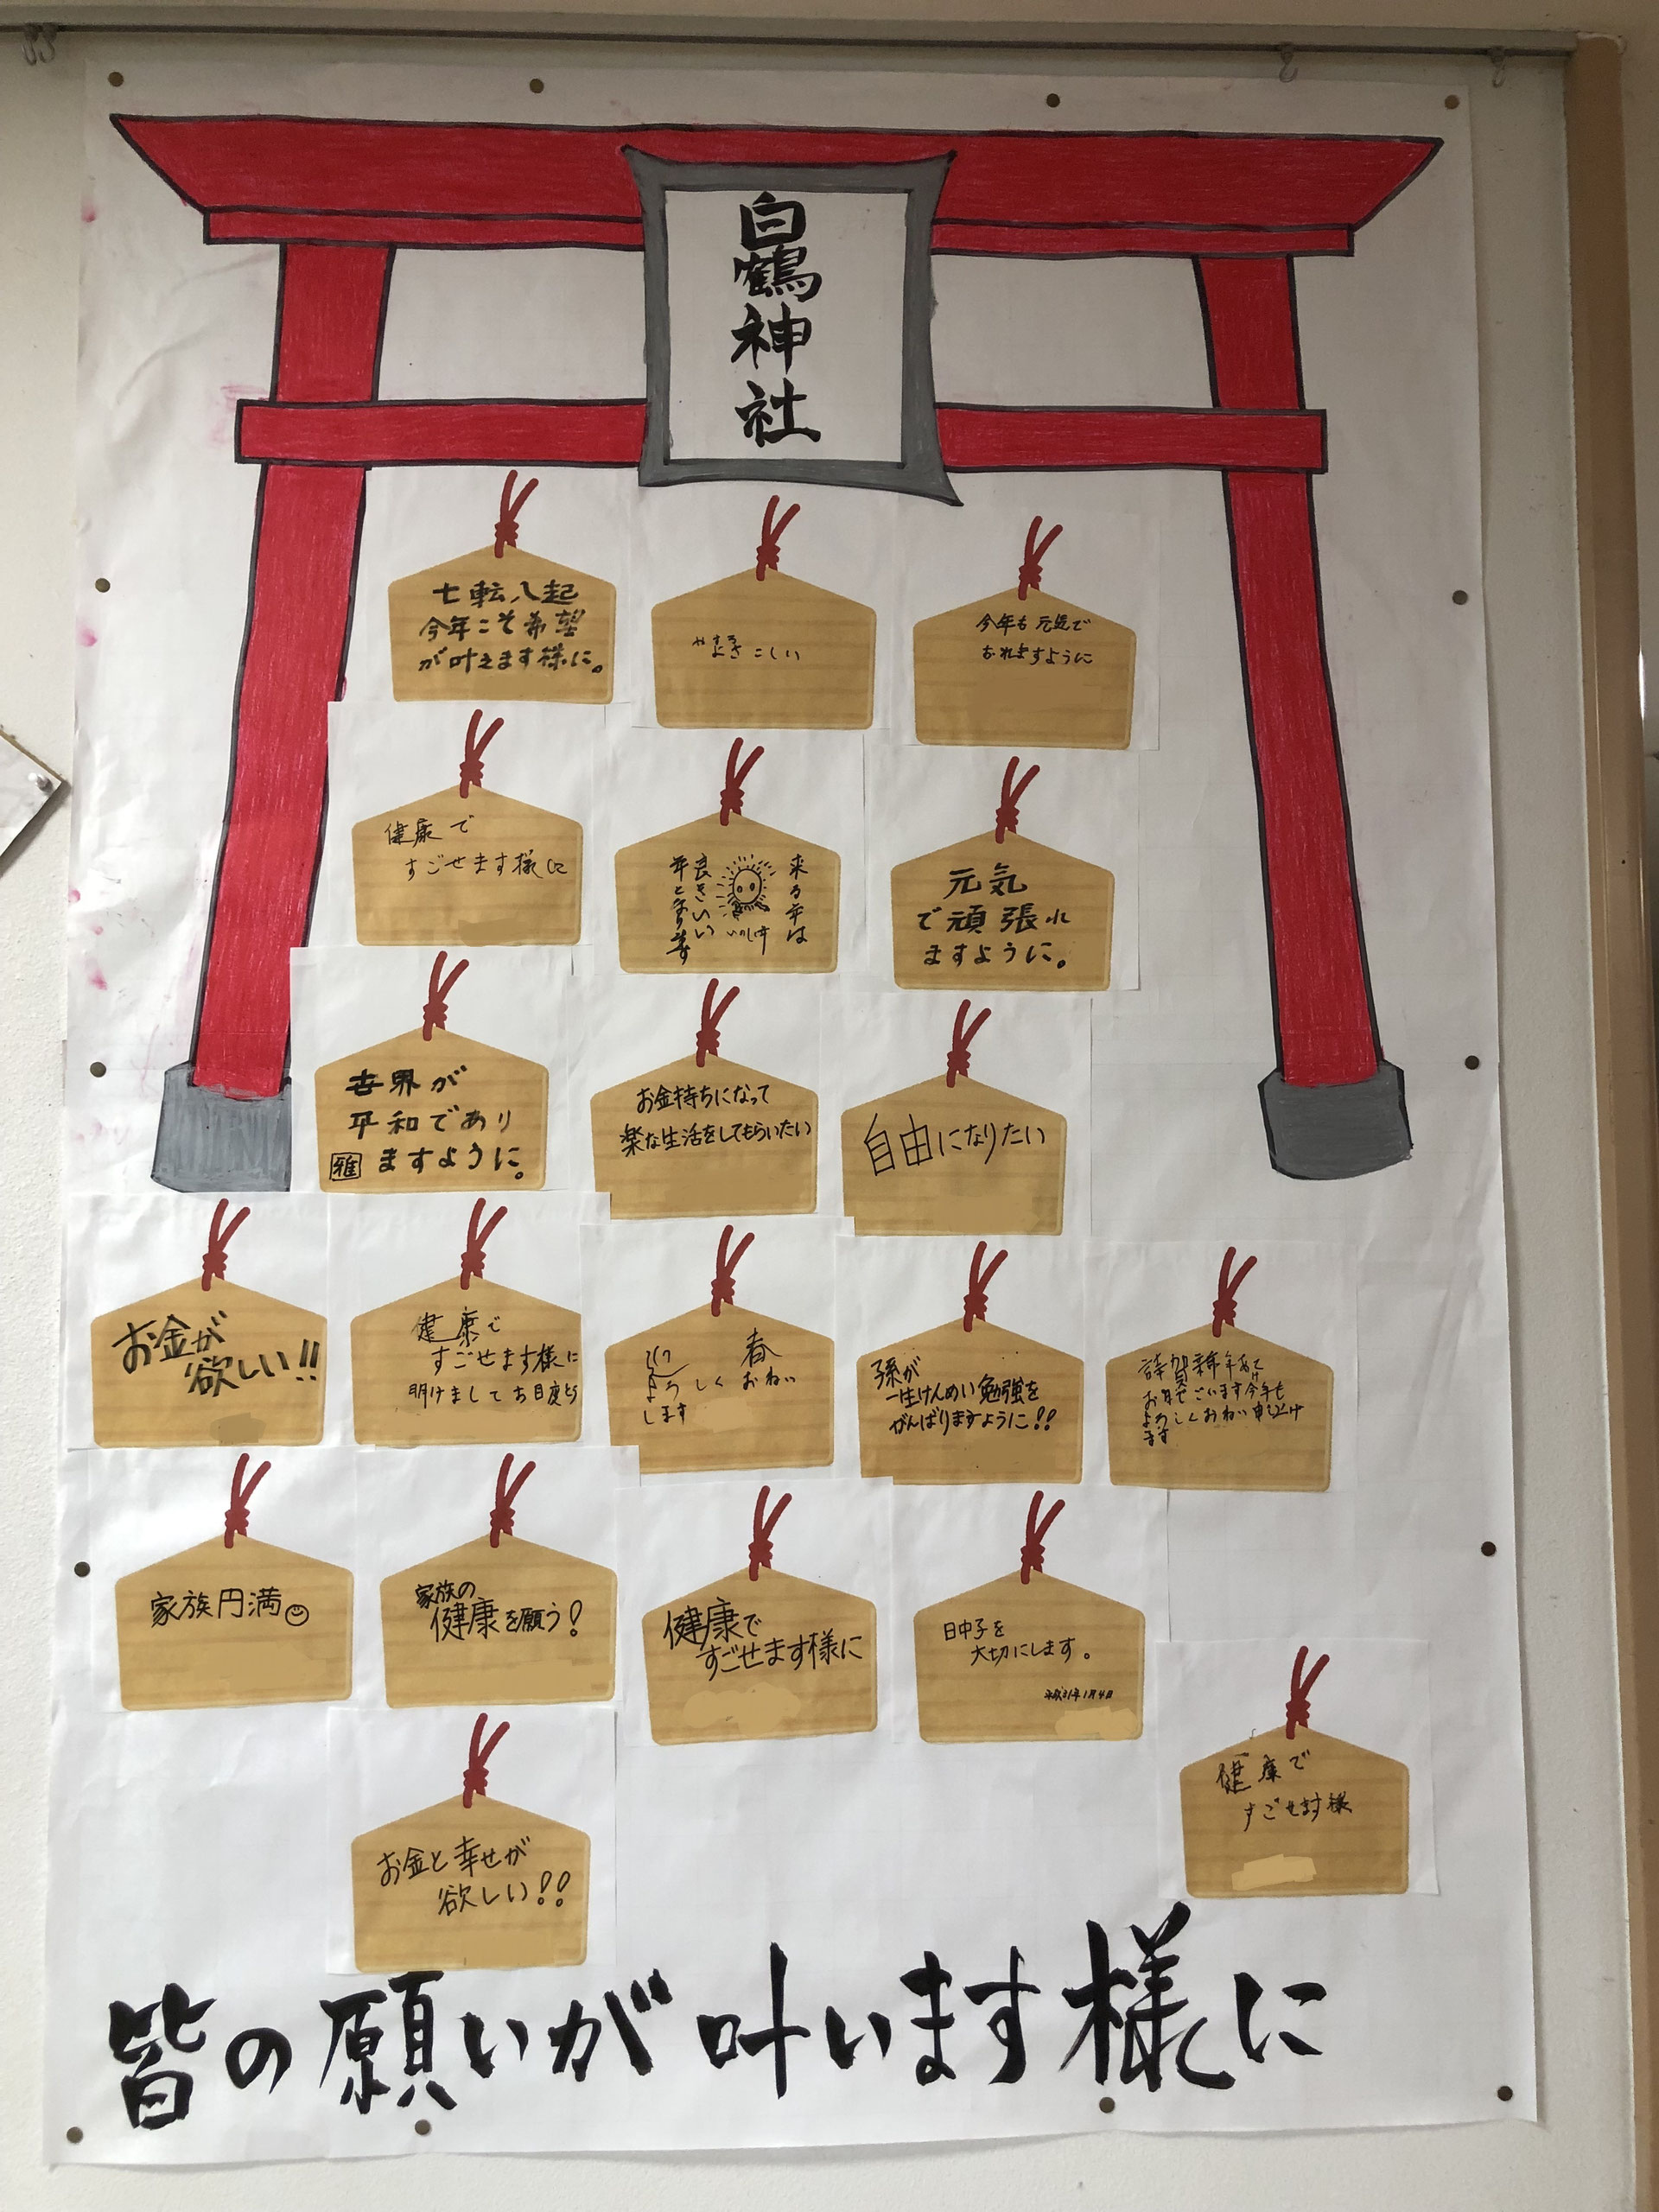 白鶴神社
七転八起
今年こそ希望
が叶えます様に。
こしい
今年も元気で
おれますように
健康で
すごせます様に
来る年は
いのしし
良きいい
年と
元気
で頑張れ
ますように。
世界が
平和であり
雅 ますように。
お金持ちになって
楽な生活をしてもらいたい
自由になりたい
お金が
欲しい!!
健康で
すごせます様に
明けましてお目度とう
春
おねい
よろしく
します
孫が
一生けんめい勉強を
がんばりますように!!
謹賀新年あけ
お目でございます今年も
よろしくおねい申上げ
ます
家族円満
家族の
健康を願う!
健康で
すごせます様に
日中子を
大切にします。
平成31年1月4日
健康で
すごせます様
お金と幸せが
欲しい!!
皆の願いが叶います様に